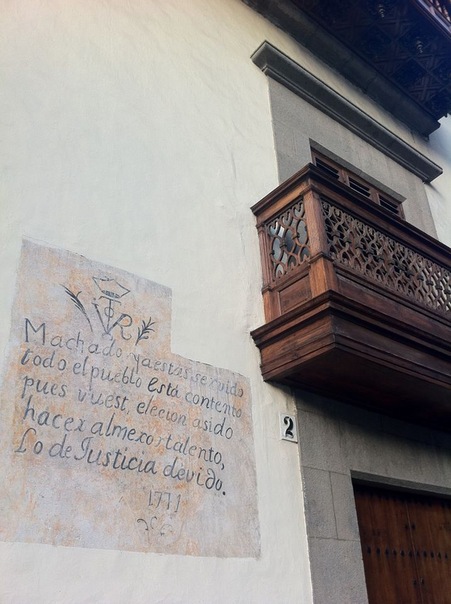 Machado, ya estás servido
todo el pueblo está contento
pues vuest. elecion asido
hacer al mexor talento,
Lo de Justicia devido.
1771
2